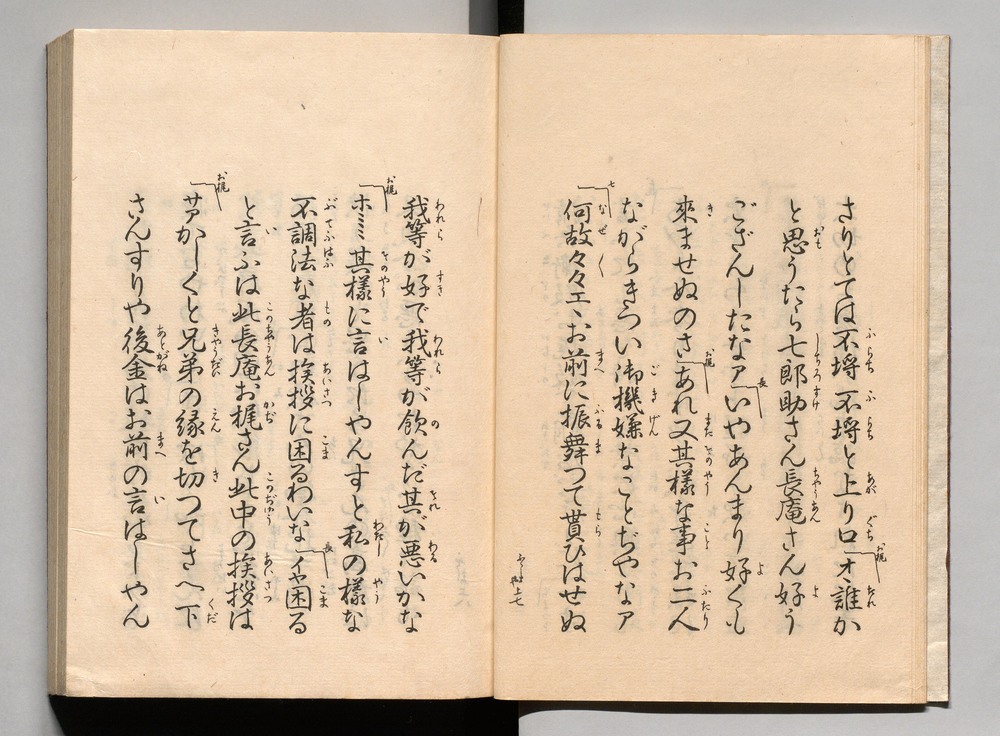 さりとては不埓不埓と上り口「オヽ誰か
と思うたら七郎助さん長庵さん好う
ござんしたなア「いやあんまり好くも
來ませぬのさ「あれ又其樣な事お二人
ながらきつい御機嫌なことぢやなア
「何故々々エヽお前に振舞つて貰ひはせぬ
我等が好で我等が飮んだ其が惡いかな
「ホヽヽ其樣に言はしやんすと私の樣な
不調法な者は挨拶に困るわいな「イヤ困る
と言ふは此長庵お梶さん此中の挨拶は
「サアかしくと兄弟の縁を切つてさへ下
さんすりや後金はお前の言はしやん